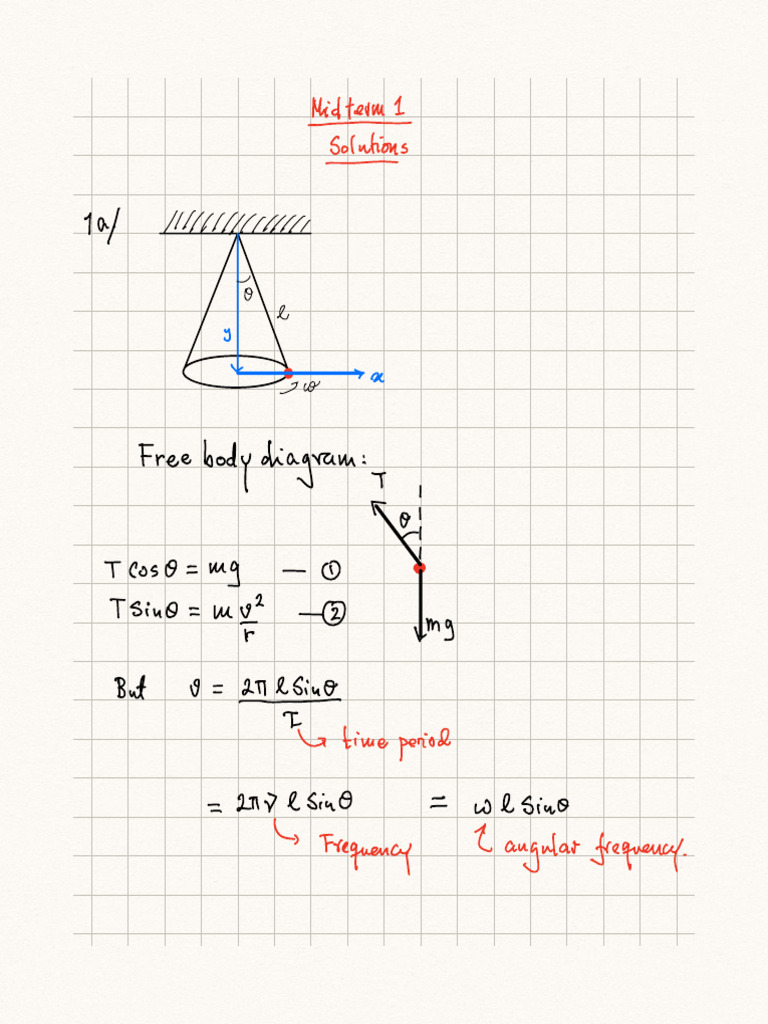 Midterm 1
Solutions
1a/
θ
l
y
x
ω
Free body diagram:
T
θ
T cosθ = mg — ①
T sinθ = m v²/r — ②
mg
But v = 2π l sinθ / τ
time period
= 2πν l sinθ = ω l sinθ
Frequency
angular frequency.